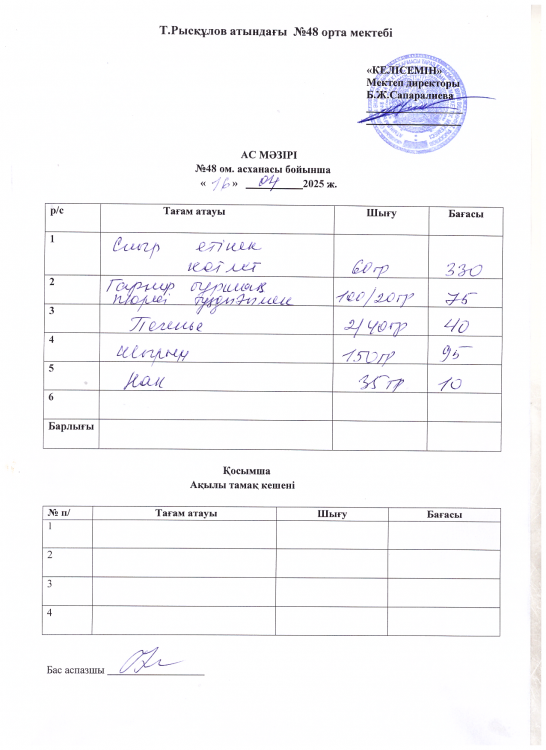 Т.Рысқұлов атындағы №48 орта мектебі
«КЕЛІСЕМІН»
Мектеп директоры
Б.Ж.Сапаралиева
АС МӘЗІРІ
№48 ом. асханасы бойынша
« 16 » 04 2025 ж.
р/с Тағам атауы Шығу Бағасы
1 Сиыр етінен
котлет 60гр 330
2 Гарнир бұршақ
пюресі тұздығымен 100/20гр 75
3 Печенье 2/40гр 40
4 Шырын 150гр 95
5 Нан 35гр 10
6
Барлығы
Қосымша
Ақылы тамақ кешені
№ п/ Тағам атауы Шығу Бағасы
1
2
3
4
Бас аспазшы